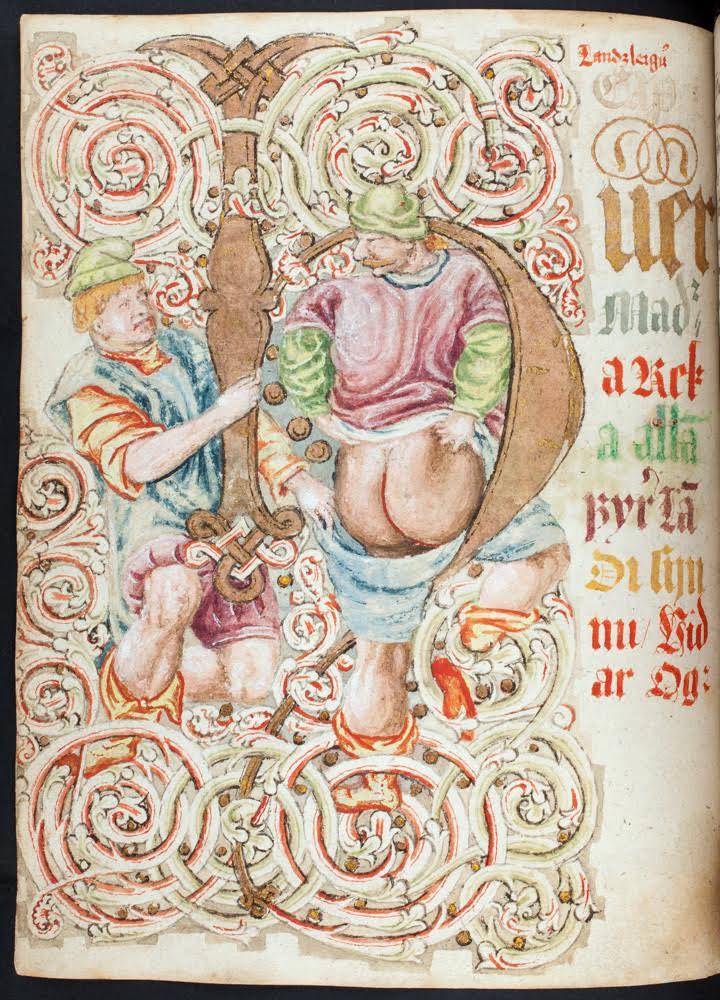 Landzleigu
Cap
uer
Mad
a Rek
a allã
fyr Lã
Di sijn
nu/ Vid
ar Og: